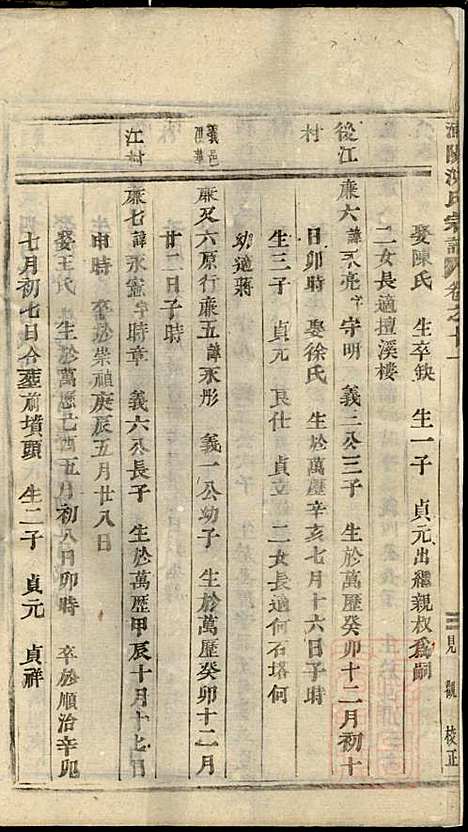 氏宗譜 卷之十一
三 見觀 校正
娶陳氏 生卒缺 生一子 貞元出繼親叔爲嗣
二女長適擅溪樓
後江村
廉六諱永亮字守明 義三公三子 生於萬歷癸卯十二月初十
日卯時 娶徐氏 生於萬歷辛亥七月十六日子時
生三子 貞元 良仕 貞立 二女長適何石塔何
幼適蔣
義邑
廉又六原行廉五諱永彤 義一公幼子 生於萬歷癸卯十二月
廿二日子時
江村
廉七諱永憲字時章 義六公長子 生於萬歷甲辰十月十七日
申時 卒於崇禎庚辰五月廿八日
娶王氏 生於萬歷己酉五月初八日卯時 卒於順治辛卯
七月初七日合葬前墳頭 生二子 貞元 貞祥